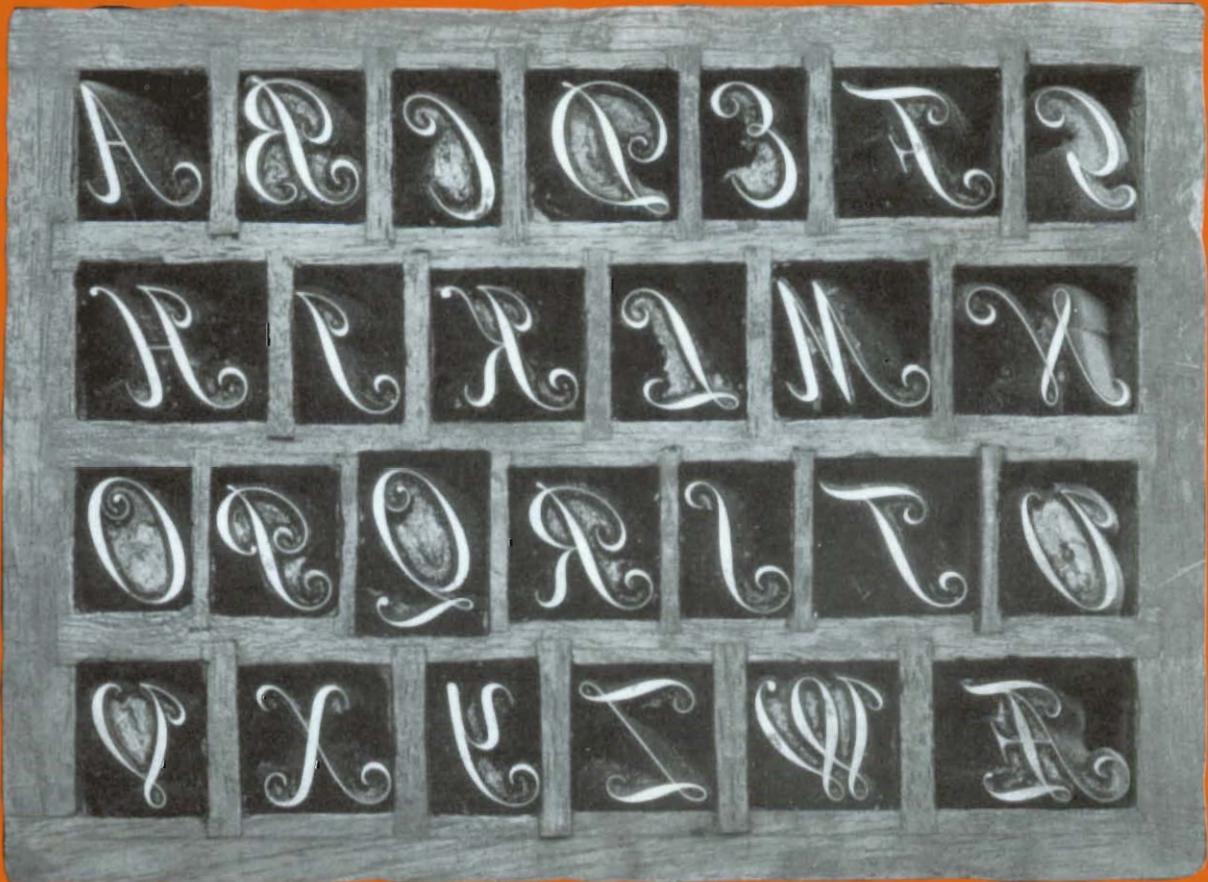 A B C D E F G
H I K L M N
O P Q R S T U
V X Y Z W Æ